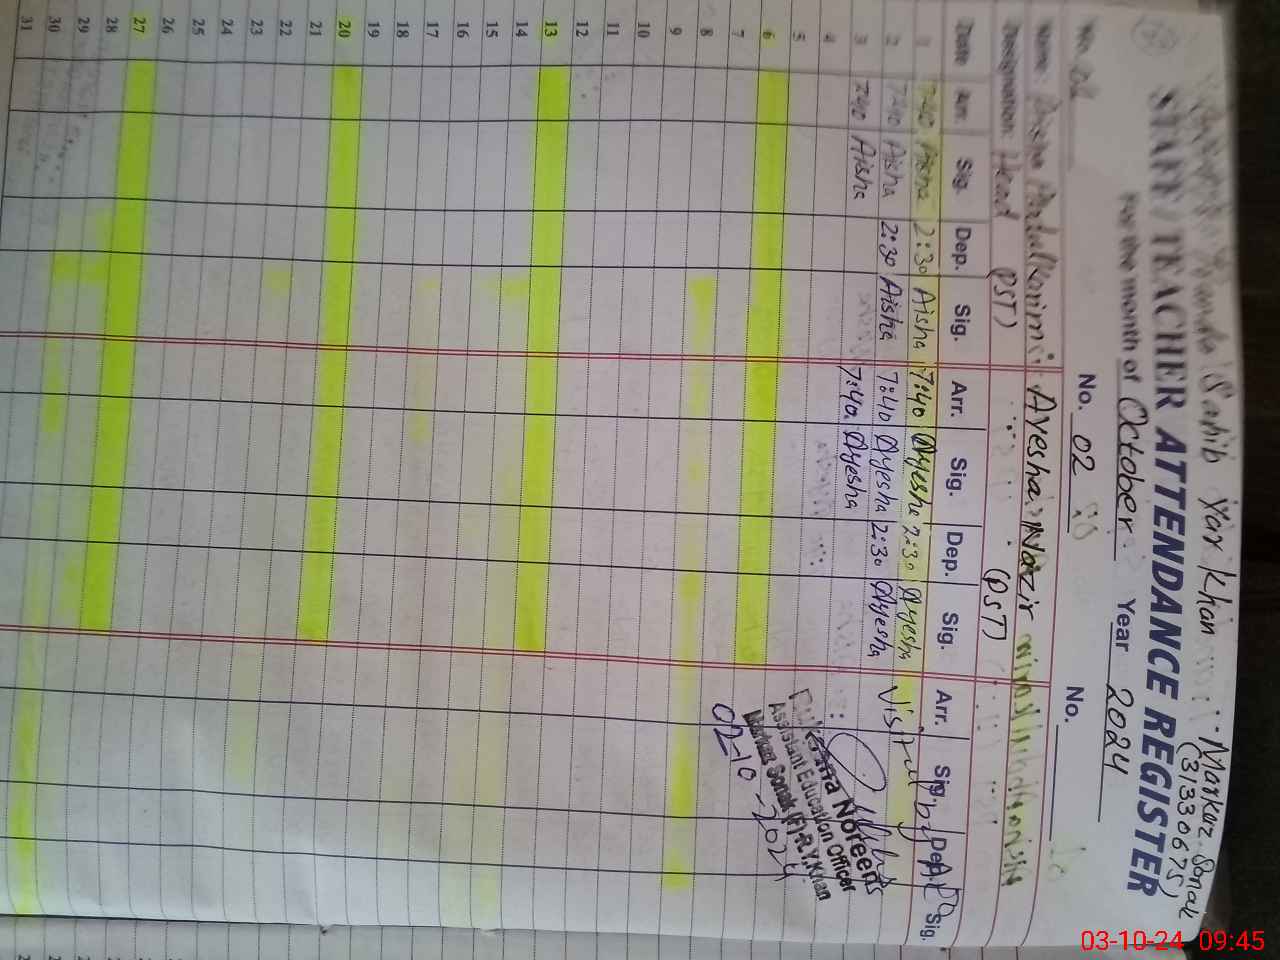 Sahib Yar Khan Markaz Sonak
(31330675)
STAFF / TEACHER ATTENDANCE REGISTER
For the month of October Year 2024
No. No. 02 No.
Name: Ayesha Nazir
Designation: Head (PST) (PST)
Date Arr. Sig. Dep. Sig. Arr. Sig. Dep. Sig. Arr. Sig. Dep. Sig.
1 7:40 Aisha 2:30 Aisha 7:40 Ayesha 2:30 Ayesha
2 7:40 Aisha 2:30 Aisha 7:40 Ayesha 2:30 Ayesha Visited by AEO
3 7:40 Aisha 7:40 Ayesha
4
5
6
7
8
9
10
11
12
13
14
15
16
17
18
19
20
21
22
23
24
25
26
27
28
29
30
31
Noreen
Assistant Education Officer
Markaz Sonak (F) R.Y.Khan
02-10-2024
03-10-24 09:45